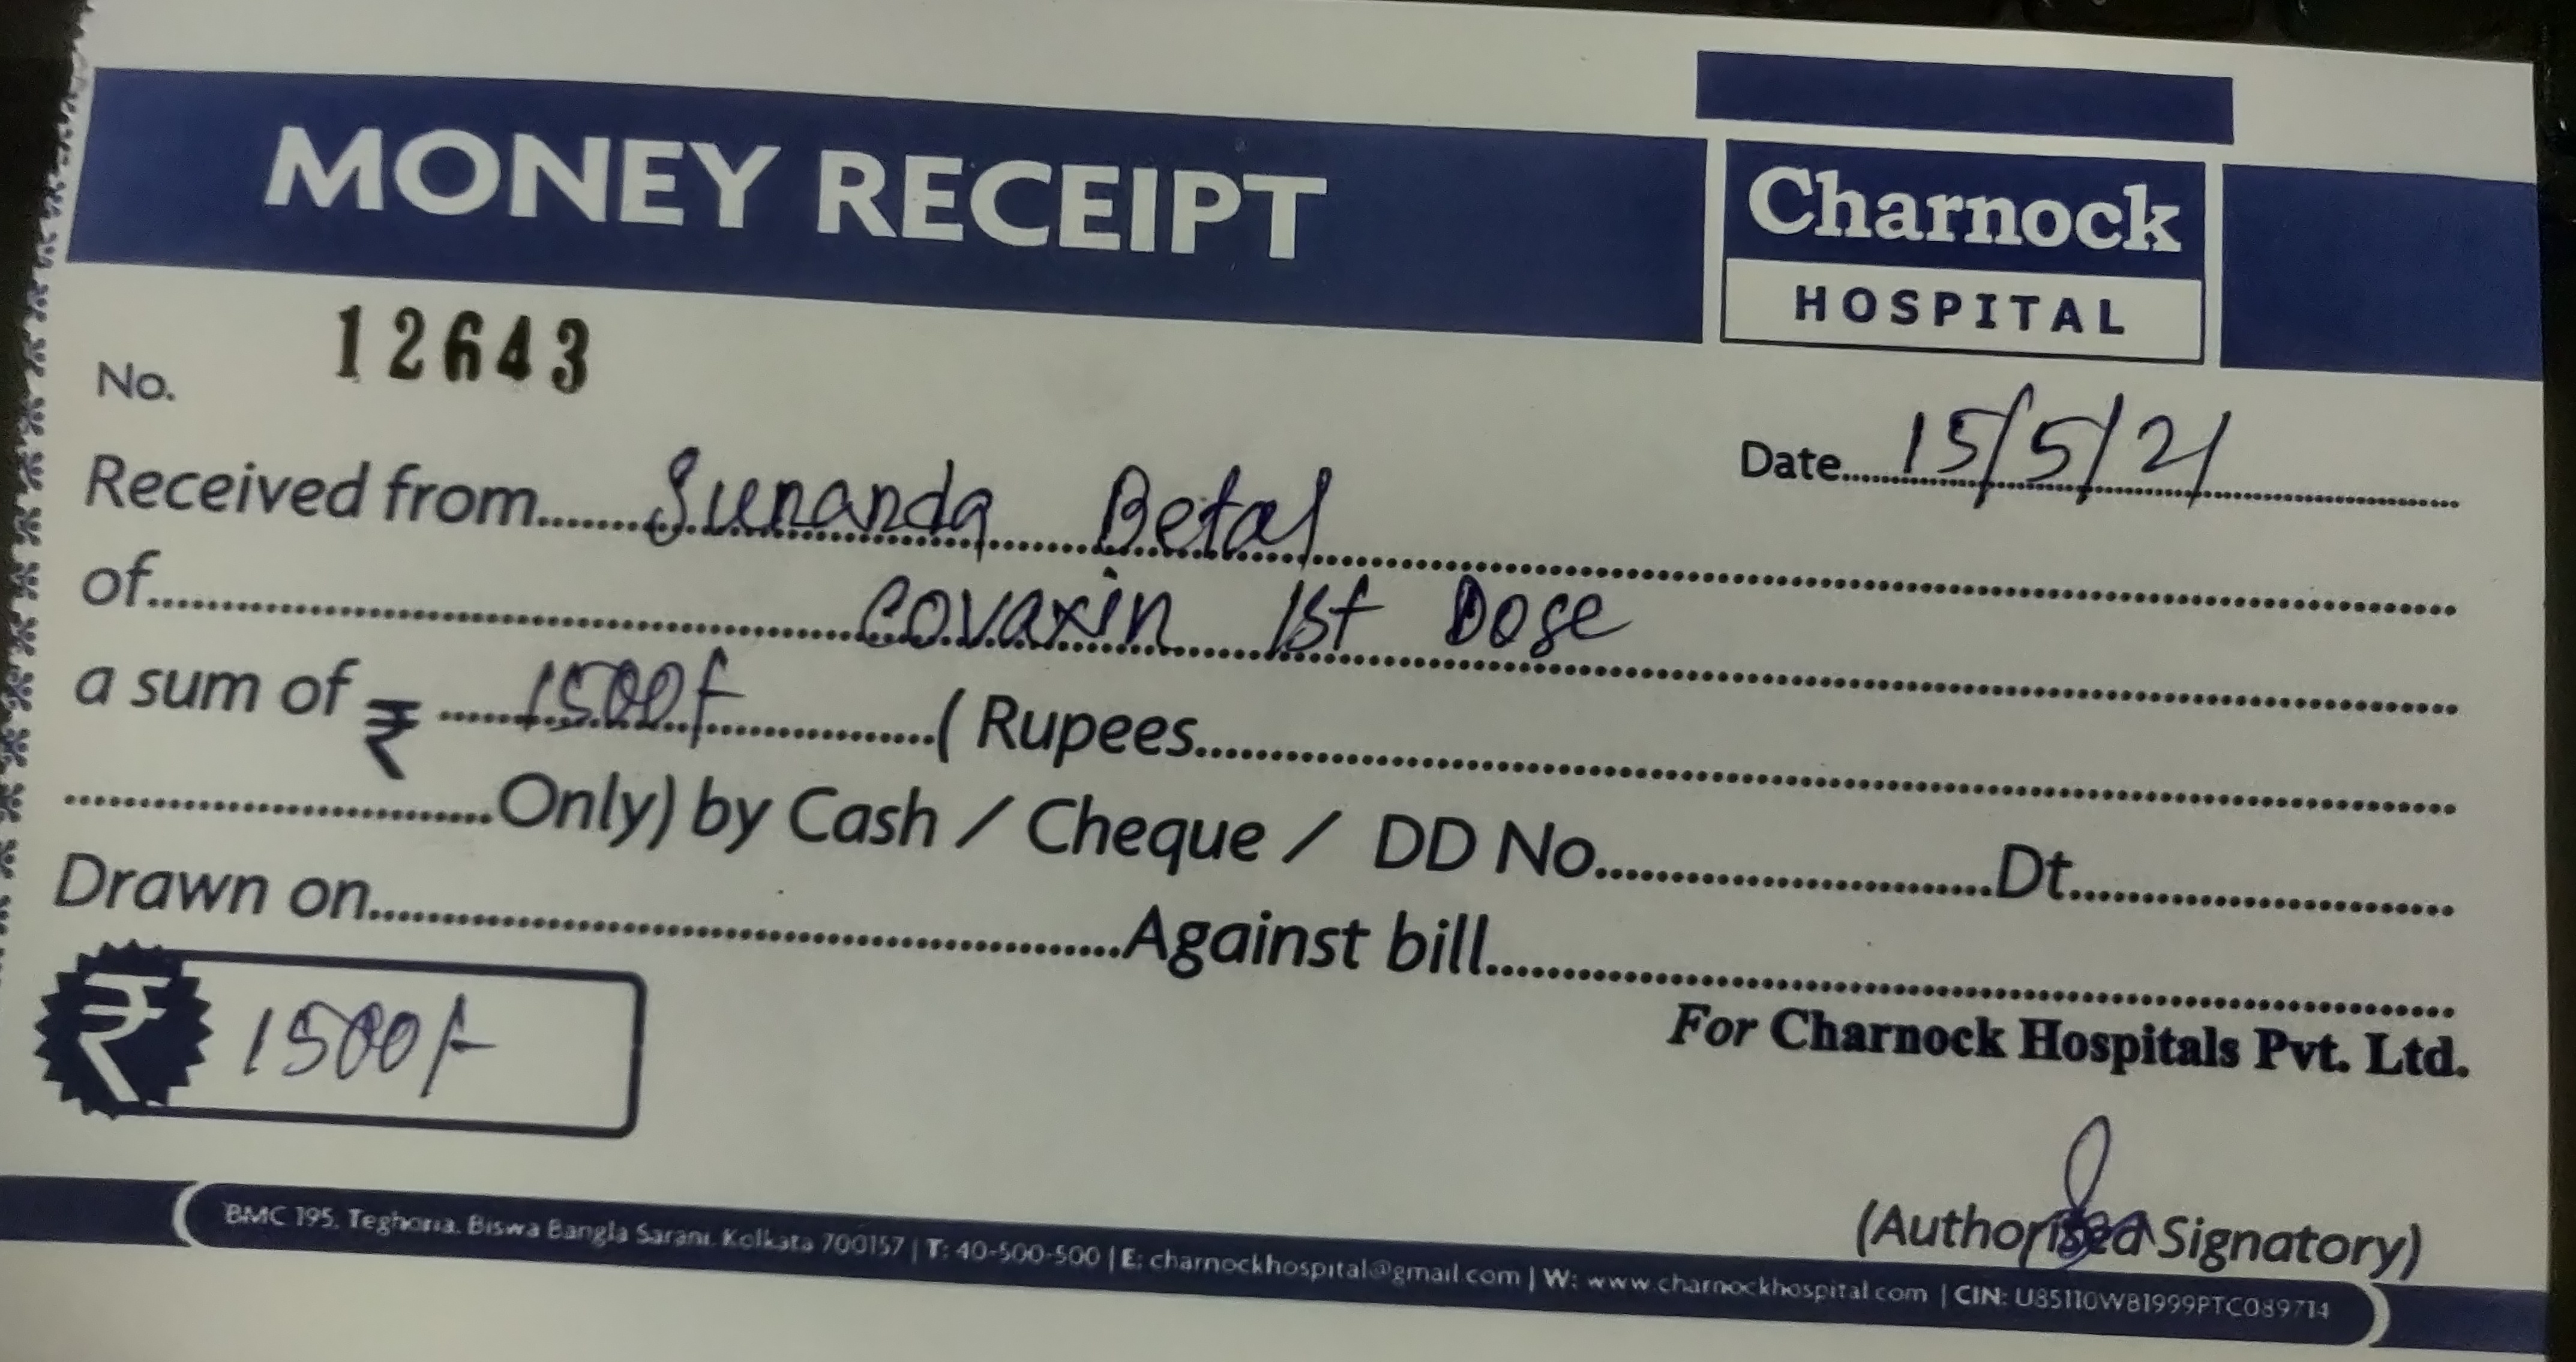 MONEY RECEIPT
Charnock
HOSPITAL
No. 12643
Date 15/5/21
Received from Sunanda Betal
of Covaxin 1st Dose
a sum of ₹ 1500/- ( Rupees
Only) by Cash / Cheque / DD No. Dt.
Drawn on Against bill
₹ 1500/-
For Charnock Hospitals Pvt. Ltd.
(Authorised Signatory)
BMC 195, Teghoria, Biswa Bangla Sarani, Kolkata 700157 | T: 40-500-500 | E: charnockhospital@gmail.com | W: www.charnockhospital.com | CIN: U85110WB1999PTC089714